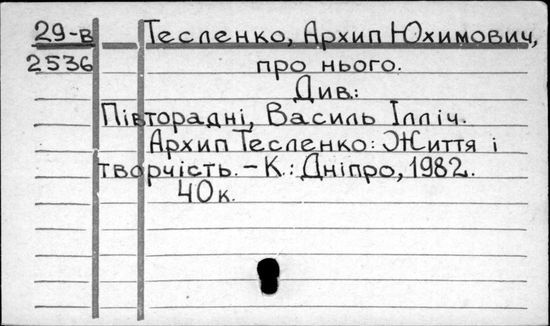 29-в Тесленко, Архип Юхимович,
2536 про нього.
Див.:
Півторадні, Василь Ілліч.
Архип Тесленко: Життя і
творчість. – К.: Дніпро, 1982.
40к.